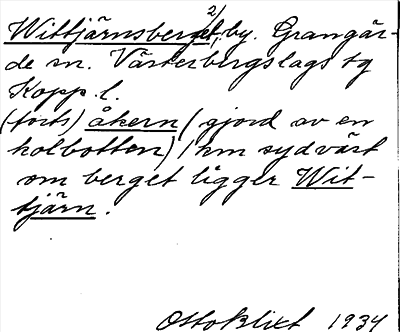 2/
Wittjärnsberget, by. Grangär-
de sn. Västerbergslags tg
Kopp. l.
(forts) åkern (gjord av en
kolbotten) 1 km sydväst
om berget ligger Wit-
tjärn.
Otto Blixt 1934